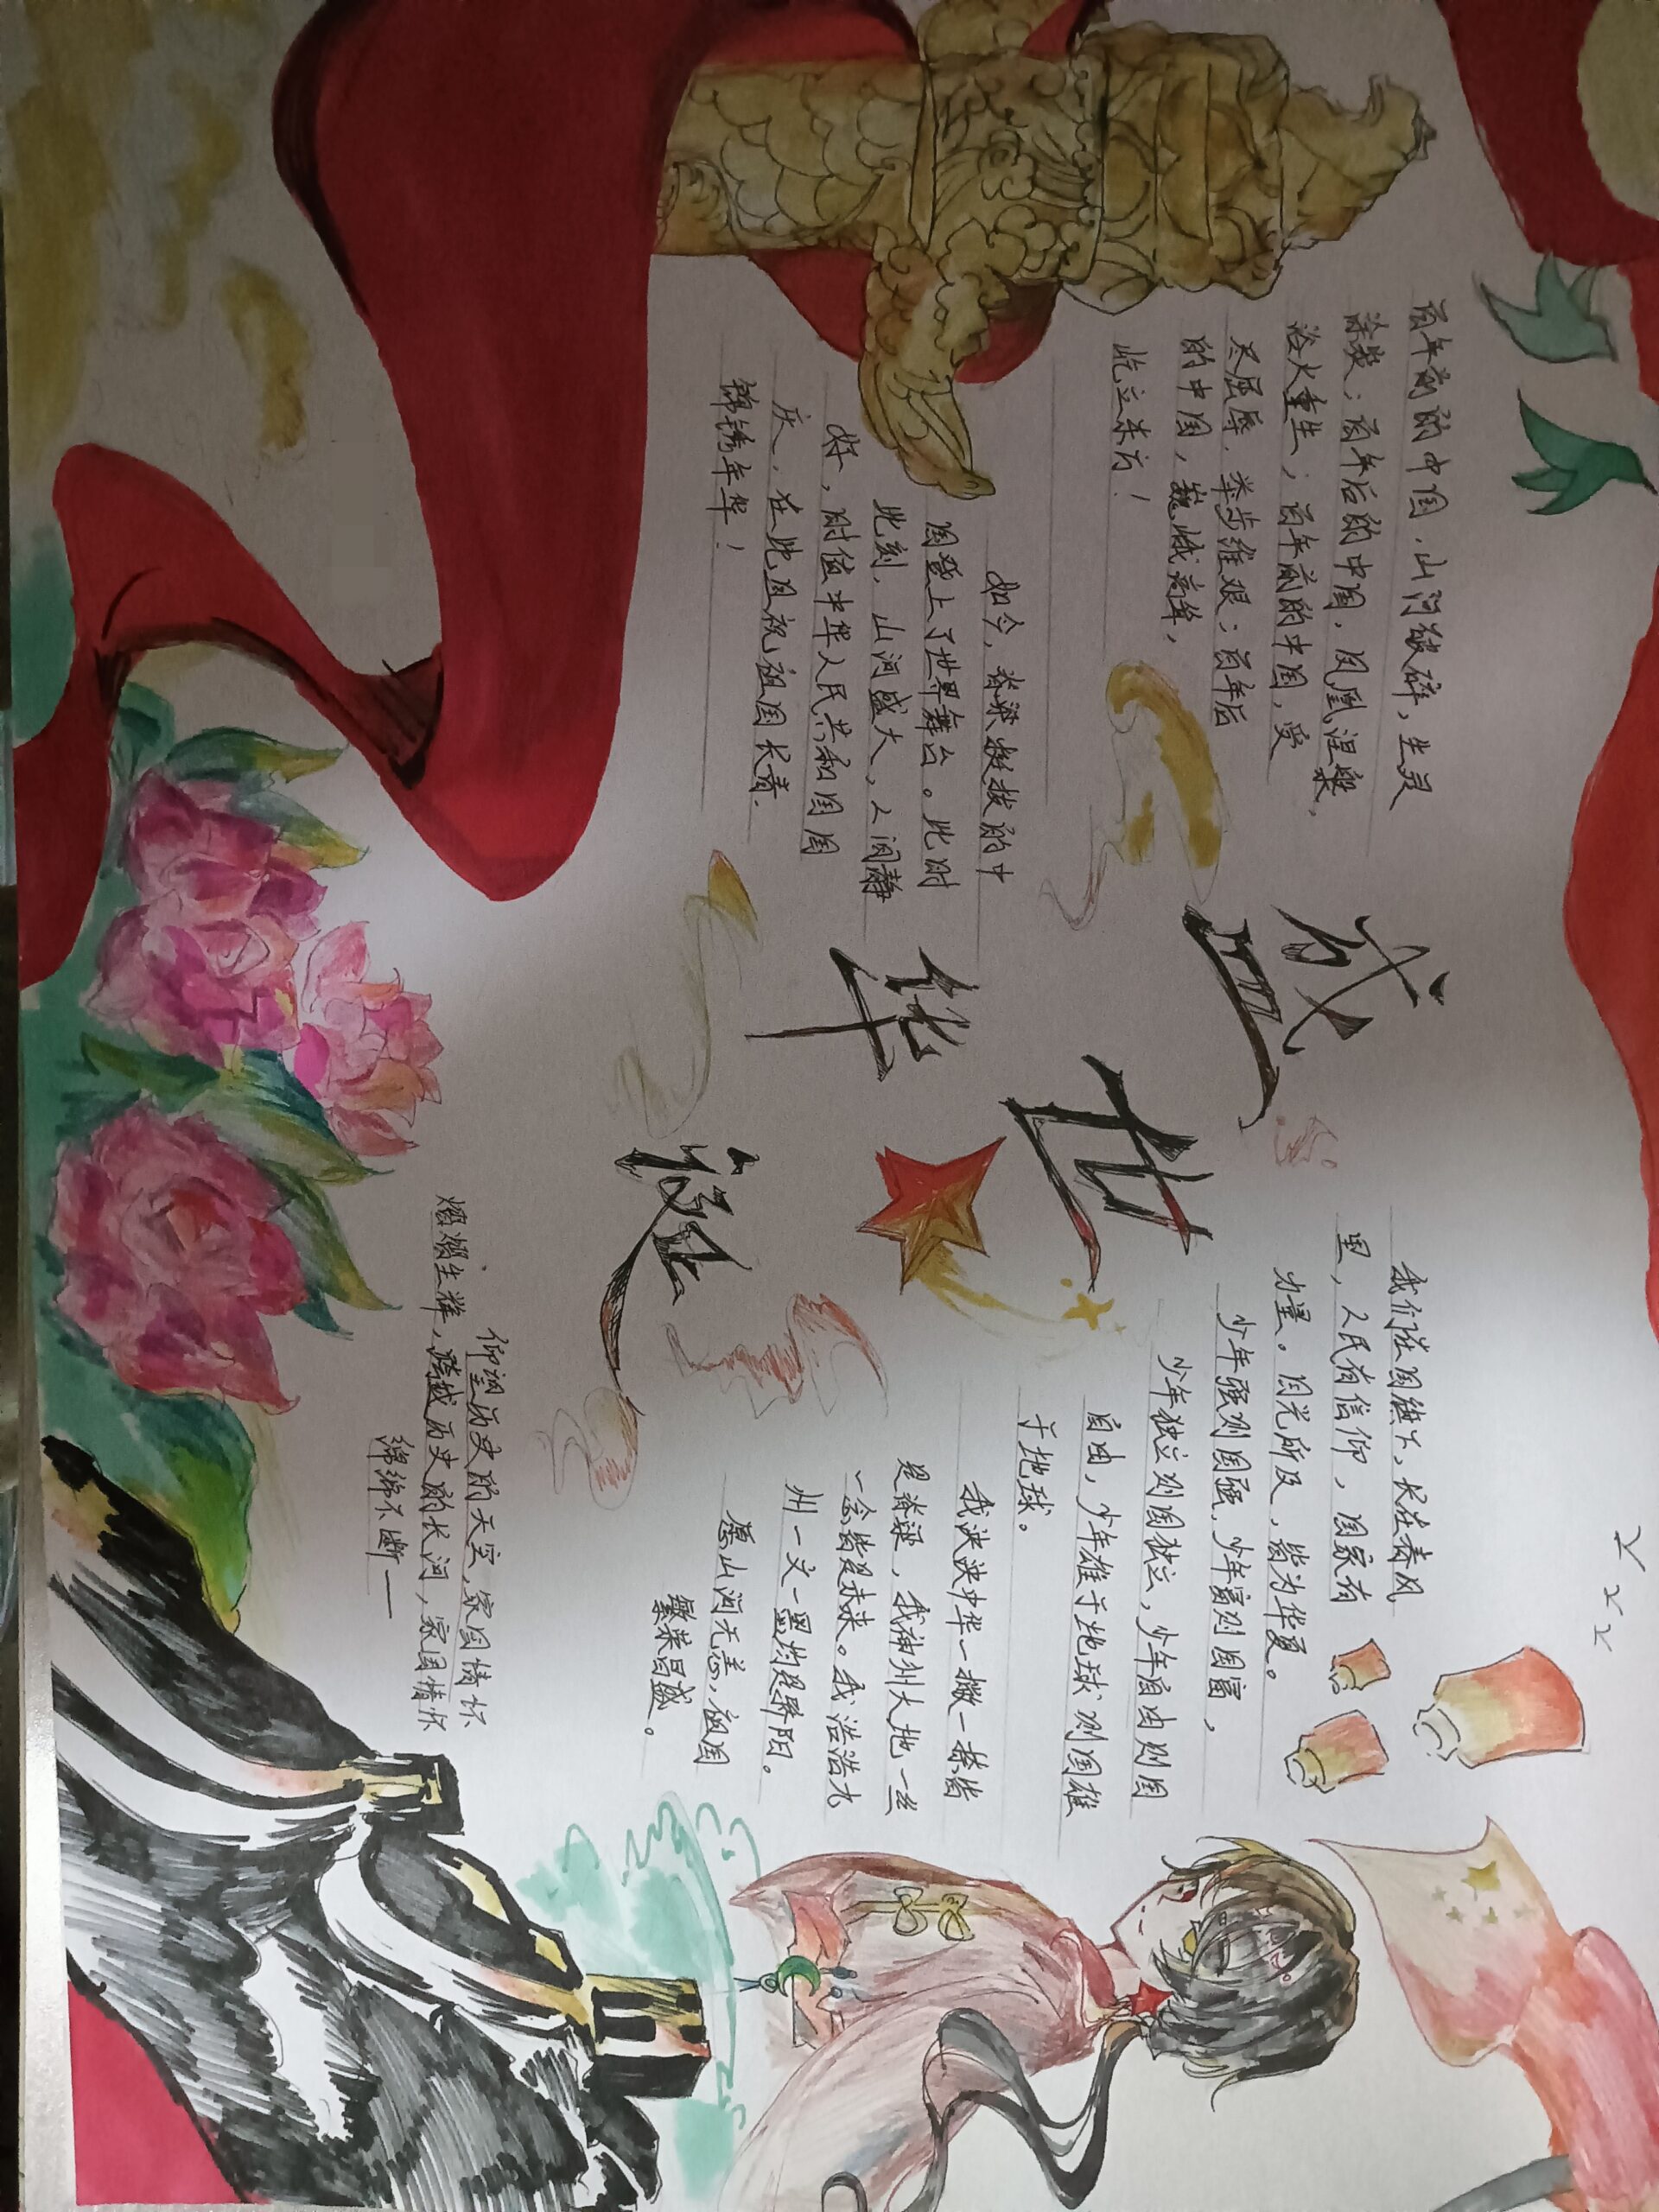 盛世华诞
百年前的中国，山河破碎，生灵
涂炭；百年后的中国，凤凰涅槃，
浴火重生；百年前的中国，受
尽屈辱，举步维艰；百年后
的中国，巍峨高耸，
屹立东方！
如今，脊梁挺拔的中
国登上了世界舞台。此时
此刻，山河盛大，人间静
好，时值中华人民共和国国
庆，在此且祝祖国长青，
锦绣年华！
我们法国旗下，长在春风
里，人民有信仰，国家有
力量。目光所及，皆为华夏。
少年强则国强，少年富则国富，
少年独立则国独立，少年自由则国
自由，少年雄于地球，则国雄
于地球。
我泱泱中华一撇一捺皆
是脊梁，我神州大地一丝
一念皆是未来。我浩浩九
州一文一墨均是骄阳。
愿山河无恙，祖国
繁荣昌盛。
仰望历史的天空，家国情怀
熠熠生辉，跨越历史的长河，家国情怀
绵绵不断——